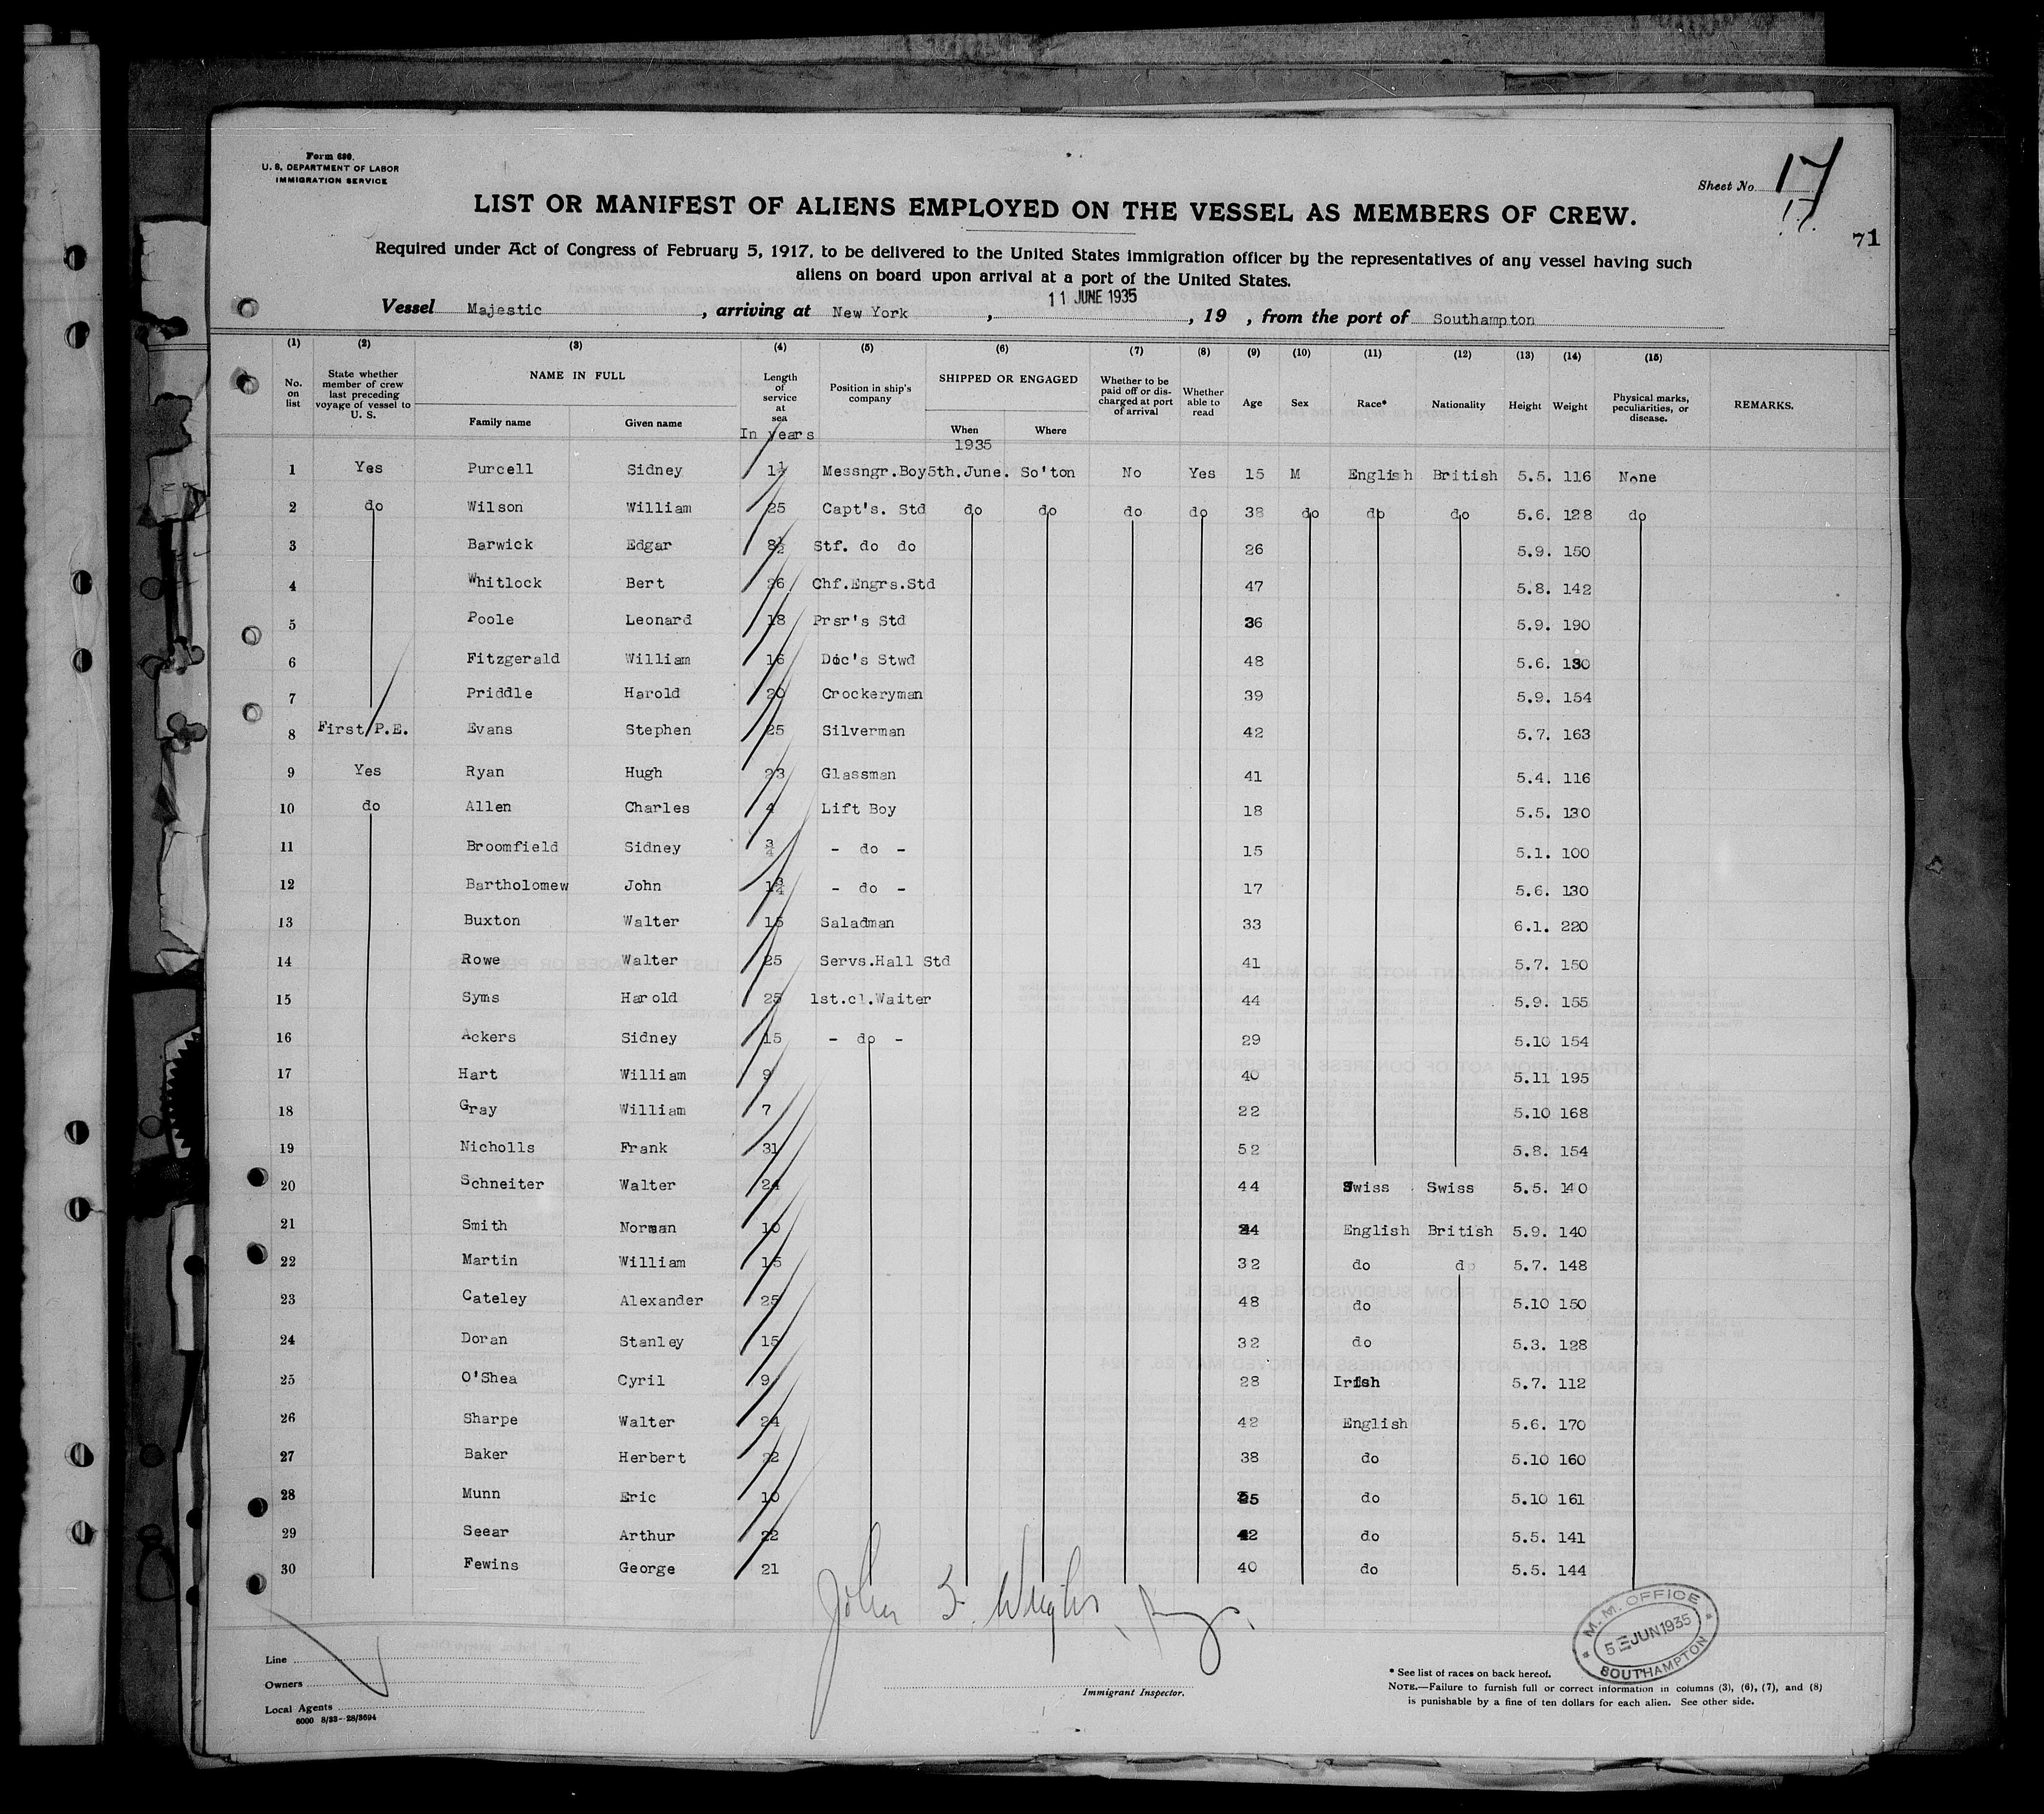 Form 680.
U. S. DEPARTMENT OF LABOR
IMMIGRATION SERVICE
Sheet No. 17
17
71
LIST OR MANIFEST OF ALIENS EMPLOYED ON THE VESSEL AS MEMBERS OF CREW.
Required under Act of Congress of February 5, 1917, to be delivered to the United States immigration officer by the representatives of any vessel having such
aliens on board upon arrival at a port of the United States.
Vessel Majestic, arriving at New York, 11 JUNE 1935, 19 , from the port of Southampton
(1) (2) (3) (4) (5) (6) (7) (8) (9) (10) (11) (12) (13) (14) (15)
No. on list State whether member of crew last preceding voyage of vessel to U. S. NAME IN FULL Family name Given name Length of service at sea Position in ship's company SHIPPED OR ENGAGED When Where Whether to be paid off or discharged at port of arrival Whether able to read Age Sex Race* Nationality Height Weight Physical marks, peculiarities, or disease. REMARKS.
In years 1935
1 Yes Purcell Sidney 1¼ Messngr.Boy 5th.June. So'ton No Yes 15 M English British 5.5. 116 None
2 do Wilson William 25 Capt's. Std do do do do 38 do do do 5.6. 128 do
3 Barwick Edgar 8½ Stf. do do 26 5.9. 150
4 Whitlock Bert 26 Chf.Engrs.Std 47 5.8. 142
5 Poole Leonard 18 Prsr's Std 36 5.9. 190
6 Fitzgerald William 16 Doc's Stwd 48 5.6. 130
7 Priddle Harold 20 Crockeryman 39 5.9. 154
8 First P.E. Evans Stephen 25 Silverman 42 5.7. 163
9 Yes Ryan Hugh 23 Glassman 41 5.4. 116
10 do Allen Charles 4 Lift Boy 18 5.5. 130
11 Broomfield Sidney ¾ - do - 15 5.1. 100
12 Bartholomew John 1¾ - do - 17 5.6. 130
13 Buxton Walter 15 Saladman 33 6.1. 220
14 Rowe Walter 25 Servs.Hall Std 41 5.7. 150
15 Syms Harold 25 1st.cl.Waiter 44 5.9. 155
16 Ackers Sidney 15 - do - 29 5.10 154
17 Hart William 9 40 5.11 195
18 Gray William 7 22 5.10 168
19 Nicholls Frank 31 52 5.8. 154
20 Schneiter Walter 24 44 Swiss Swiss 5.5. 140
21 Smith Norman 10 24 English British 5.9. 140
22 Martin William 15 32 do do 5.7. 148
23 Cateley Alexander 25 48 do 5.10 150
24 Doran Stanley 15 32 do 5.3. 128
25 O'Shea Cyril 9 28 Irish 5.7. 112
26 Sharpe Walter 24 42 English 5.6. 170
27 Baker Herbert 22 38 do 5.10 160
28 Munn Eric 10 25 do 5.10 161
29 Seear Arthur 22 42 do 5.5. 141
30 Fewins George 21 40 do 5.5. 144
M. M. OFFICE
5 JUN 1935
SOUTHAMPTON
Line
Owners
Local Agents
6000 8/33--28/3694
Immigrant Inspector.
* See list of races on back hereof.
NOTE.—Failure to furnish full or correct information in columns (3), (6), (7), and (8)
is punishable by a fine of ten dollars for each alien. See other side.